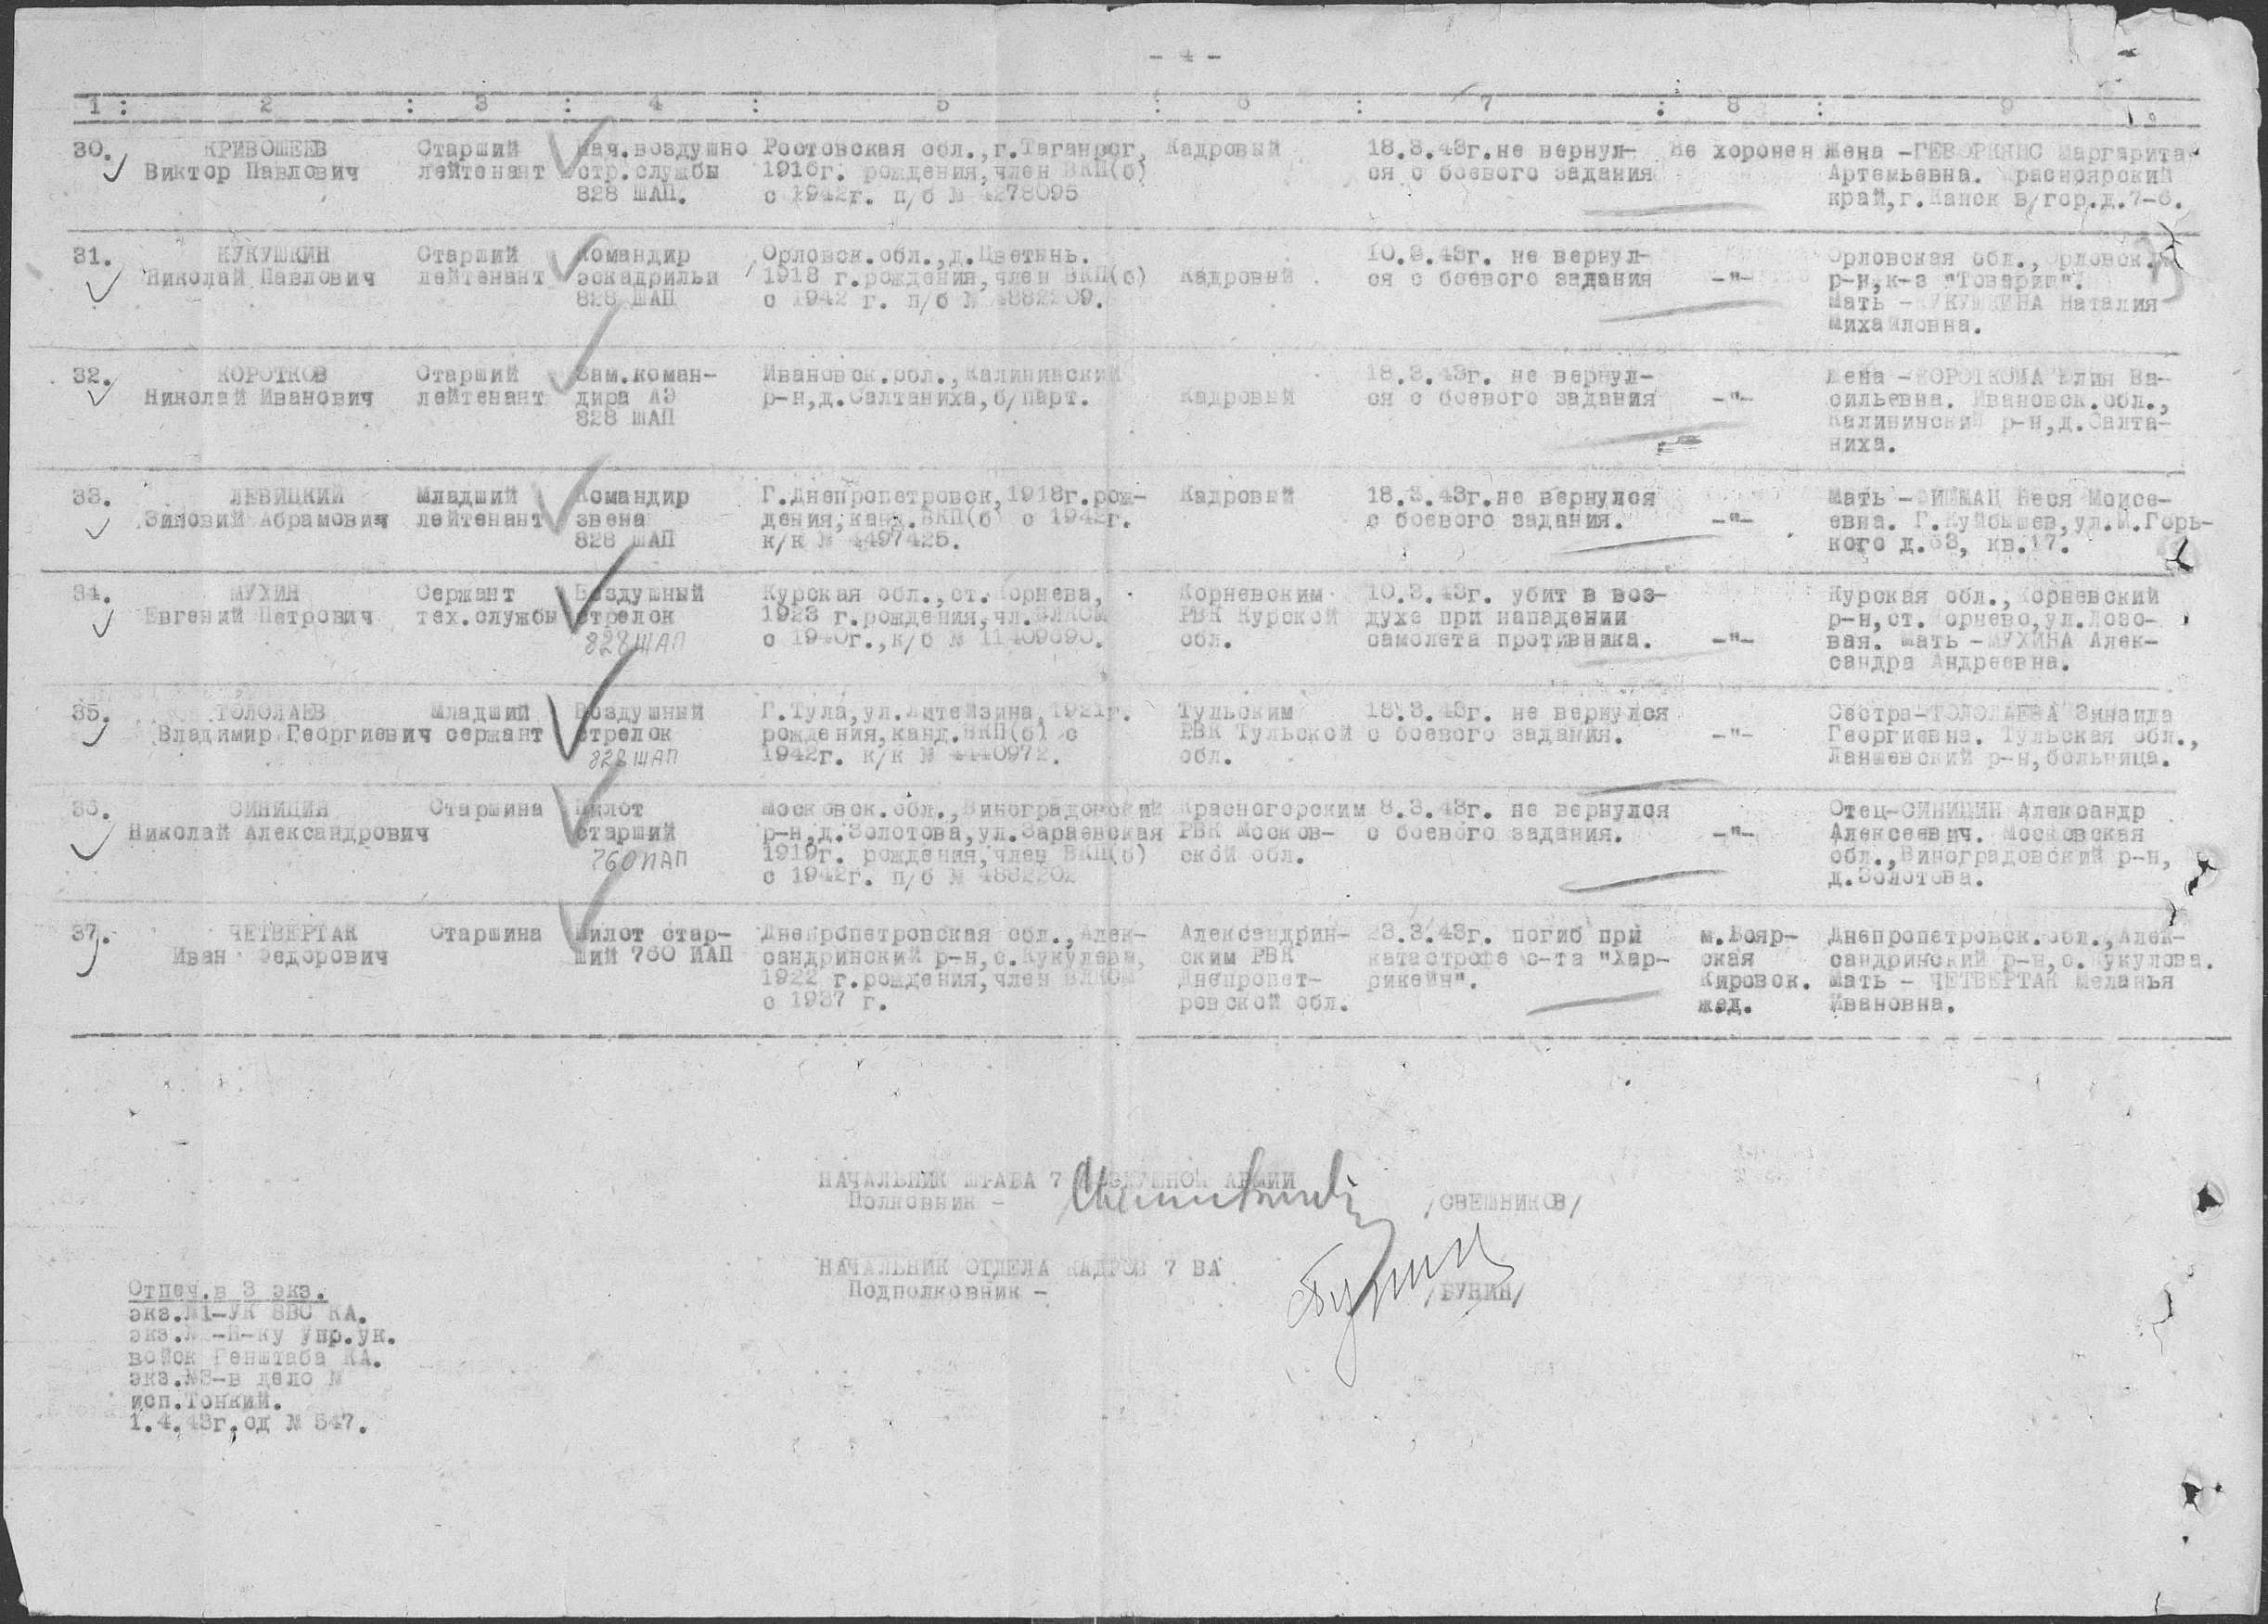 - 4 -
1 : 2 : 3 : 4 : 5 : 6 : 7 : 8 : 9
30. КРИВОШЕЕВ Старший Нач.воздушно Ростовская обл.,г.Таганрог, Кадровый 18.3.43г.не вернул- Не хоронен Жена -ГЕВОРКЯНС Маргарита
Виктор Павлович лейтенант стр.службы 1916г. рождения,член ВКП(б) ся с боевого задания Артемьевна. Красноярский
828 ШАП. с 1942г. п/б № 4278095 край,г.Канск в/гор.д.7-6.
31. КУКУШКИН Старший Командир Орловск.обл.,д.Цветынь. 10.3.43г. не вернул- Орловская обл.,Орловск.
Николай Павлович лейтенант эскадрильи 1918 г.рождения,член ВКП(б) Кадровый ся с боевого задания -"- р-н,к-з "Товарищ".
828 ШАП с 1942 г. п/б № 4882209. Мать -КУКУШКИНА Наталия
Михайловна.
32. КОРОТКОВ Старший Зам.коман- Ивановск.обл.,Калининский 18.3.43г. не вернул- Жена -КОРОТКОВА Юлия Ва-
Николай Иванович лейтенант дира АЭ р-н,д.Салтаниха,б/парт. Кадровый ся с боевого задания -"- сильевна. Ивановск.обл.,
828 ШАП Калининский р-н,д.Салта-
ниха.
33. ЛЕВИЦКИЙ Младший Командир Г.Днепропетровск,1918г.рож- Кадровый 18.3.43г.не вернулся Мать -ФИШМАН Неся Моисе-
Зиновий Абрамович лейтенант звена дения,канд.ВКП(б) с 1942г. с боевого задания. -"- евна. Г.Куйбышев,ул.М.Горь-
828 ШАП к/к № 4497425. кого д.63, кв.17.
34. МУХИН Сержант Воздушный Курская обл.,ст.Корнева, Корневским 10.3.43г. убит в воз- Курская обл.,Корневский
Евгений Петрович тех.службы стрелок 1923 г.рождения,чл.ВЛКСМ РВК Курской духе при нападении р-н,ст.Корнево,ул.Лозо-
828 ШАП с 1940г.,к/б № 11409690. обл. самолета противника. -"- вая. Мать -МУХИНА Алек-
сандра Андреевна.
35. ТОЛОЛАЕВ Младший Воздушный Г.Тула,ул.Литейзина,1921г. Тульским 18.3.43г. не вернулся Сестра-ТОЛОЛАЕВА Зинаида
Владимир Георгиевич сержант стрелок рождения,канд.ВКП(б) с РВК Тульской с боевого задания. -"- Георгиевна. Тульская обл.,
828 ШАП 1942г. к/к № 4440972. обл. Лапшевский р-н,больница.
36. СИНИЦИН Старшина Пилот Московск.обл.,Виноградовский Красногорским 8.3.43г. не вернулся Отец-СИНИЦИН Александр
Николай Александрович старший р-н,д.Золотова,ул.Зараевская РВК Москов- с боевого задания. -"- Алексеевич. Московская
760 ИАП 1919г. рождения,член ВКП(б) ской обл. обл.,Виноградовский р-н,
с 1942г. п/б № 4882202 д.Золотова.
37. ЧЕТВЕРТАК Старшина Пилот стар- Днепропетровская обл.,Алек- Александрин- 23.3.43г. погиб при м.Бояр- Днепропетровск.обл.,Алек-
Иван Федорович ший 760 ИАП сандринский р-н,с.Кукулевы, ским РВК катастрофе с-та "Хар- ская сандринский р-н,с.Кукулова.
1922 г.рождения,член ВЛКСМ Днепропет- рикейн". Кировск. Мать - ЧЕТВЕРТАК Меланья
с 1937 г. ровской обл. жед. Ивановна.
НАЧАЛЬНИК ШТАБА 7 ВОЗДУШНОЙ АРМИИ
Полковник - /СВЕШНИКОВ/
НАЧАЛЬНИК ОТДЕЛА КАДРОВ 7 ВА
Подполковник - /БУНИН/
Отпеч.в 3 экз.
экз.№1-УК ВВС КА.
экз.№ -Н-ку Упр.ук.
войск Генштаба КА.
экз.№3-в дело №
исп.Тонкий.
1.4.43г.од № 547.